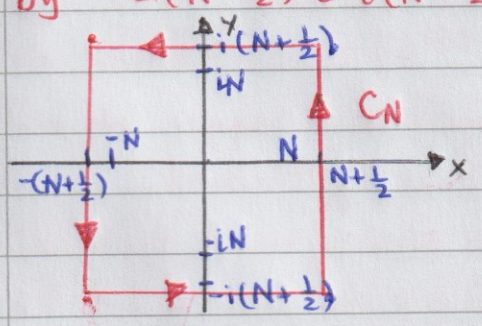 by
Y
i(N+½)
iN
C_N
-N
N
X
-(N+½)
N+½
-iN
-i(N+½)